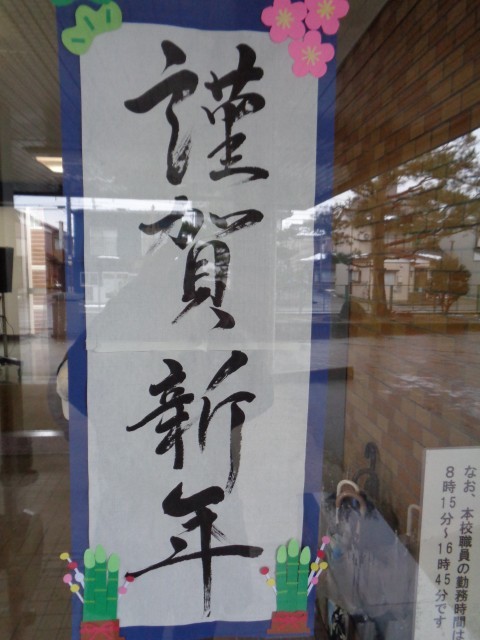 謹賀新年
なお、本校職員の勤務時間は
8時15分～16時45分です